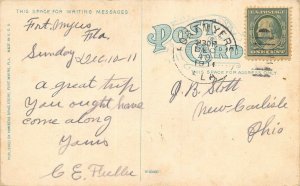 THIS SPACE FOR WRITING MESSAGES
POST CARD
Fort Myers
Fla.
Sunday Dec, 10-11
a great trip
You ought have
come along
Yours
C E Fuller
FT. MYERS
DEC
1911
FLA.
THIS SPACE FOR ADDRESS ONLY
J. B. Stott
New Carlisle
Ohio
ONE CENT